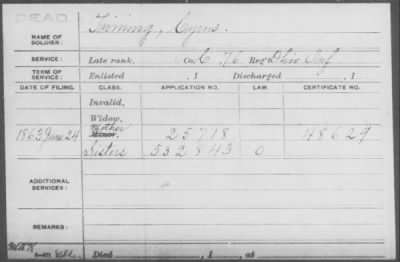 DEAD
NAME OF SOLDIER: Twining, Cyrus.
SERVICE: Late rank, Co. C, 76 Reg't Ohio Inf
TERM OF SERVICE: Enlisted , 1 Discharged , 1
DATE OF FILING. CLASS. APPLICATION NO. LAW. CERTIFICATE NO.
Invalid,
Widow,
Mother
1863 June 24 Minor, 25718 48629
Sisters 532843 0
ADDITIONAL SERVICES:
REMARKS:
Died , 1 , at